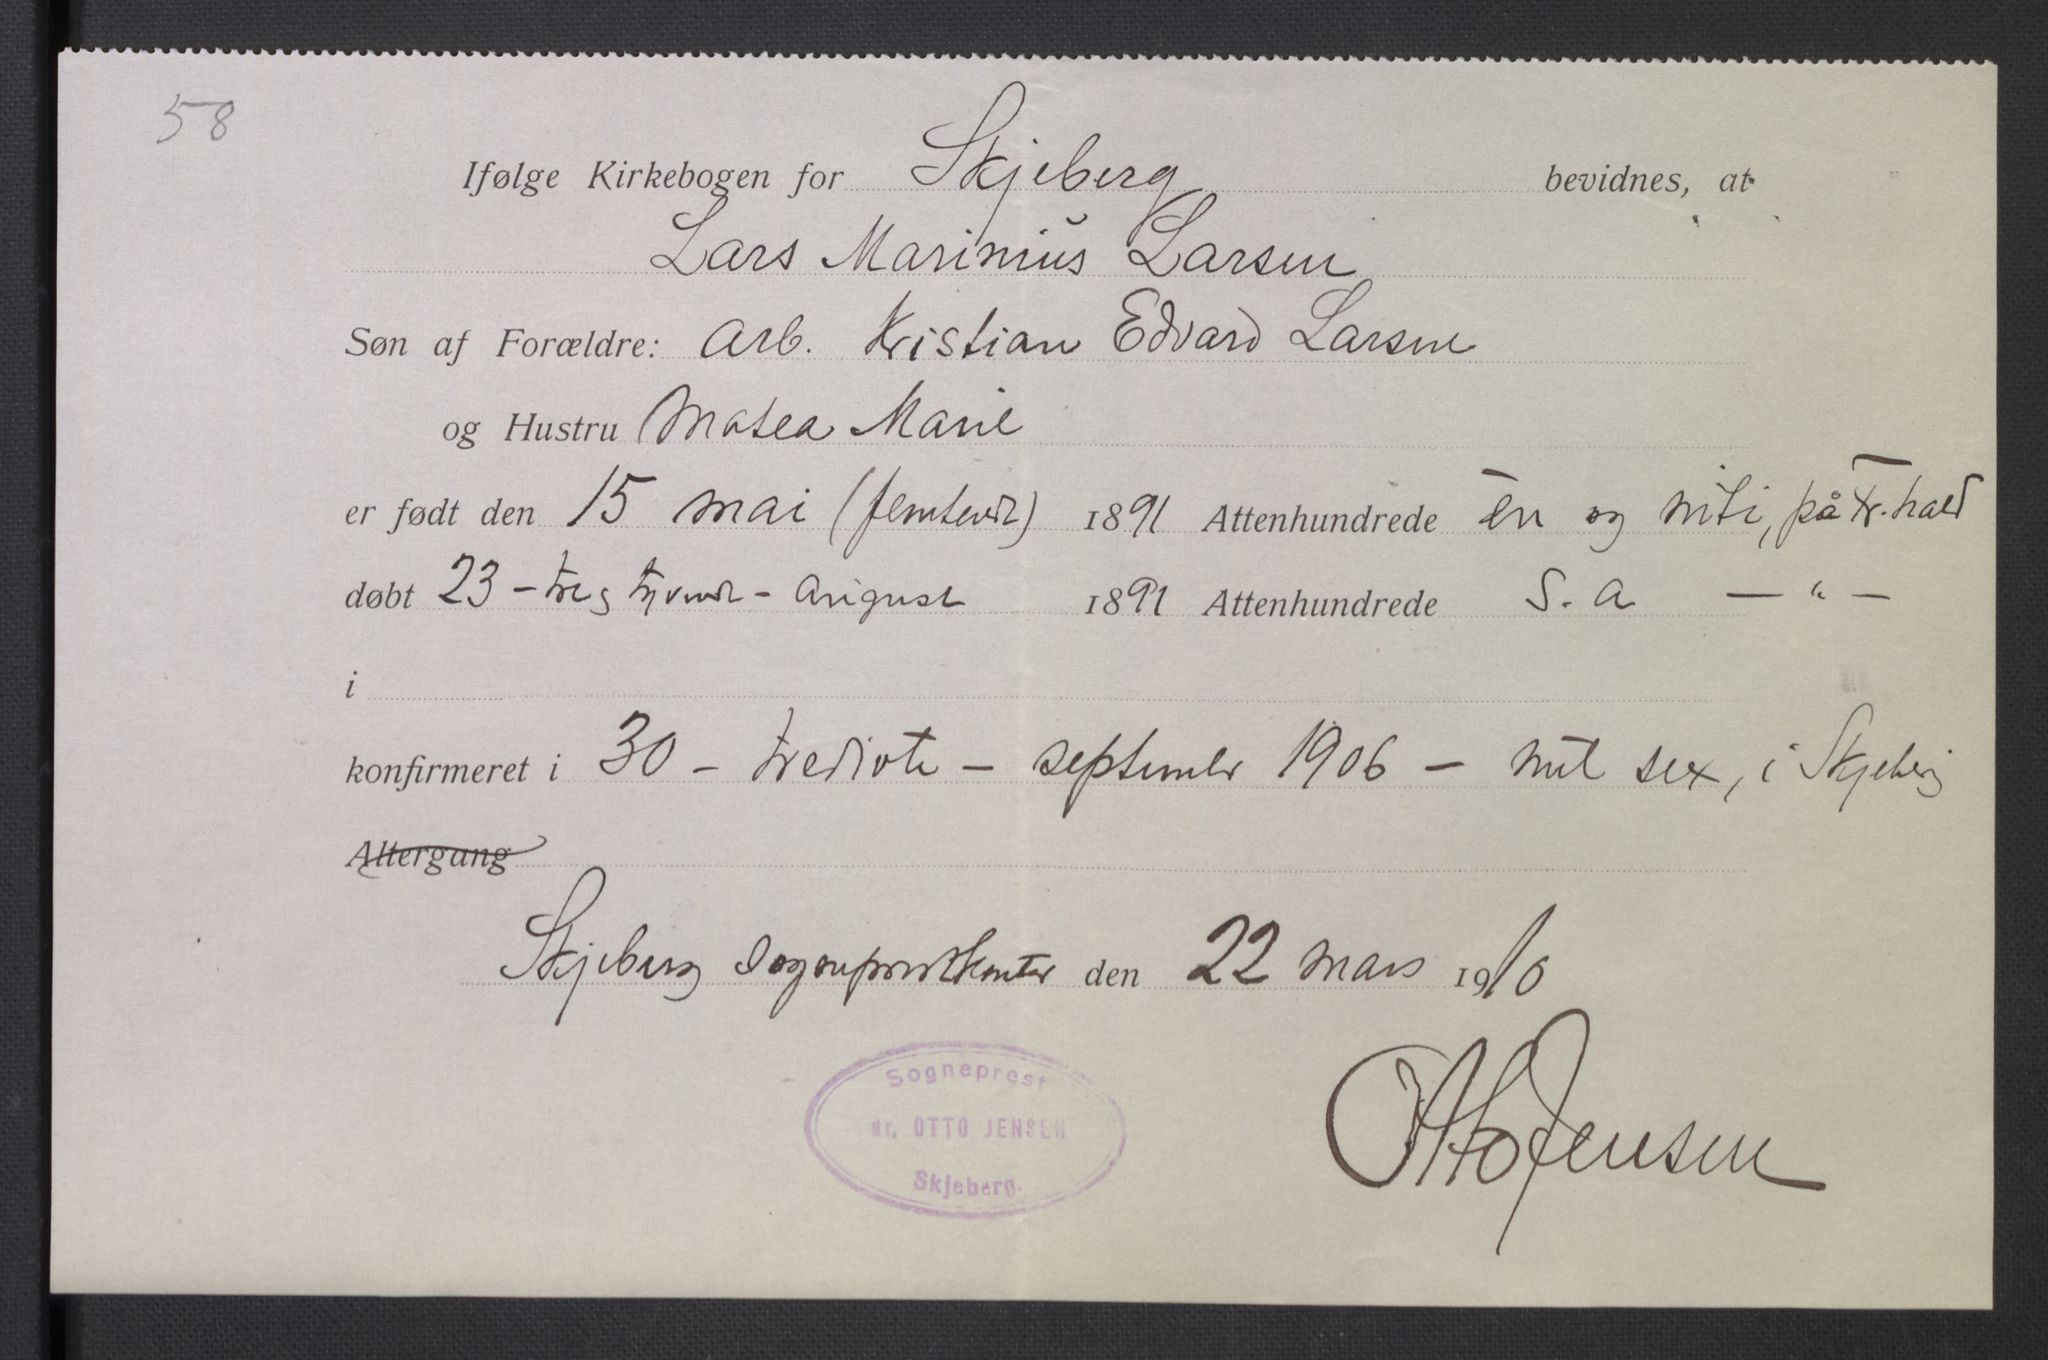 58
Ifølge Kirkebogen for Skjeberg bevidnes, at
Lars Marinius Larsen
Søn af Forældre: Arb. Kristian Edvard Larsen
og Hustru Matea Marie
er født den 15 mai (femtende) 1891 Attenhundrede én og niti, på Fr.hald
døbt 23 - tre og tyvende - august 1891 Attenhundrede S. a — " —
i
konfirmeret i 30 - trediote - september 1906 - nul sex, i Skjeberg
Altergang
Skjeberg sogneprestkontor den 22 mars 1910
Otto Jensen
Sogneprest
dr. OTTO JENSEN
Skjeberg.